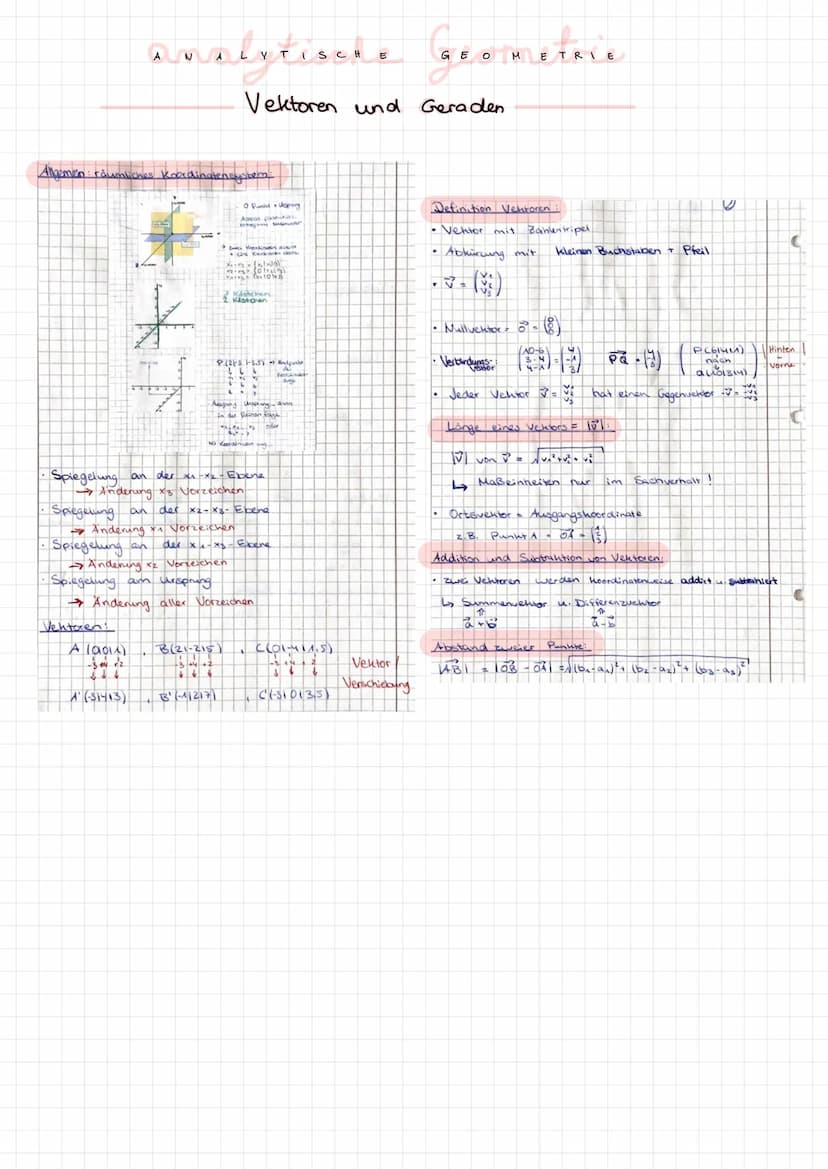 ANALYTISCHE GEOMETRIE
analytische Geometrie
Vektoren und Geraden
Allgemein: räumliches Koordinatensystem:
P (2|-3|-2,5)
· Spiegelung an der x1-x2-Ebene
→ Änderung x3 Vorzeichen
· Spiegelung an der x2-x3-Ebene
→ Änderung x1 Vorzeichen
· Spiegelung an der x1-x3-Ebene
→ Änderung x2 Vorzeichen
· Spiegelung am Ursprung
→ Änderung aller Vorzeichen
Vektoren:
A (0|0|1) , B(2|-2|5) , C(0|-4|1,5)
-3 +4 +2 -3 +4 +2 -3 +4 +2
Vektor /
Verschiebung
A'(-3|4|3) , B'(-1|2|7) , C'(-3|0|3,5)
Definition Vektoren:
• Vektor mit Zahlentripel
• Abkürzung mit kleinen Buchstaben + Pfeil
• v⃗ = (v1 v2 v3)
• Nullvektor = o⃗ = (0 0 0)
• Verbindungsvektor: (10-6 3-4 4-1) = (4 -1 3) PQ⃗ = (4 -1 3) (P(6|4|1) nach Q(10|3|4)) Hinten - vorne !
• Jeder Vektor v⃗ = v1 v2 v3 hat einen Gegenvektor -v⃗ = -v1 -v2 -v3
Länge eines Vektors = |v⃗|:
|v⃗| von v⃗ = √v1² + v2² + v3²
↳ Maßeinheiten nur im Sachverhalt!
• Ortsvektor = Ausgangskoordinate
z.B. Punkt A = OA⃗ =
Addition und Subtraktion von Vektoren:
• zwei Vektoren werden koordinatenweise addiert u. subtrahiert
↳ Summenvektor u. Differenzvektor
a⃗ + b⃗ a⃗ - b⃗
Abstand zweier Punkte:
|AB⃗| = |OB⃗ - OA⃗| = √(b1-a1)² + (b2-a2)² + (b3-a3)²